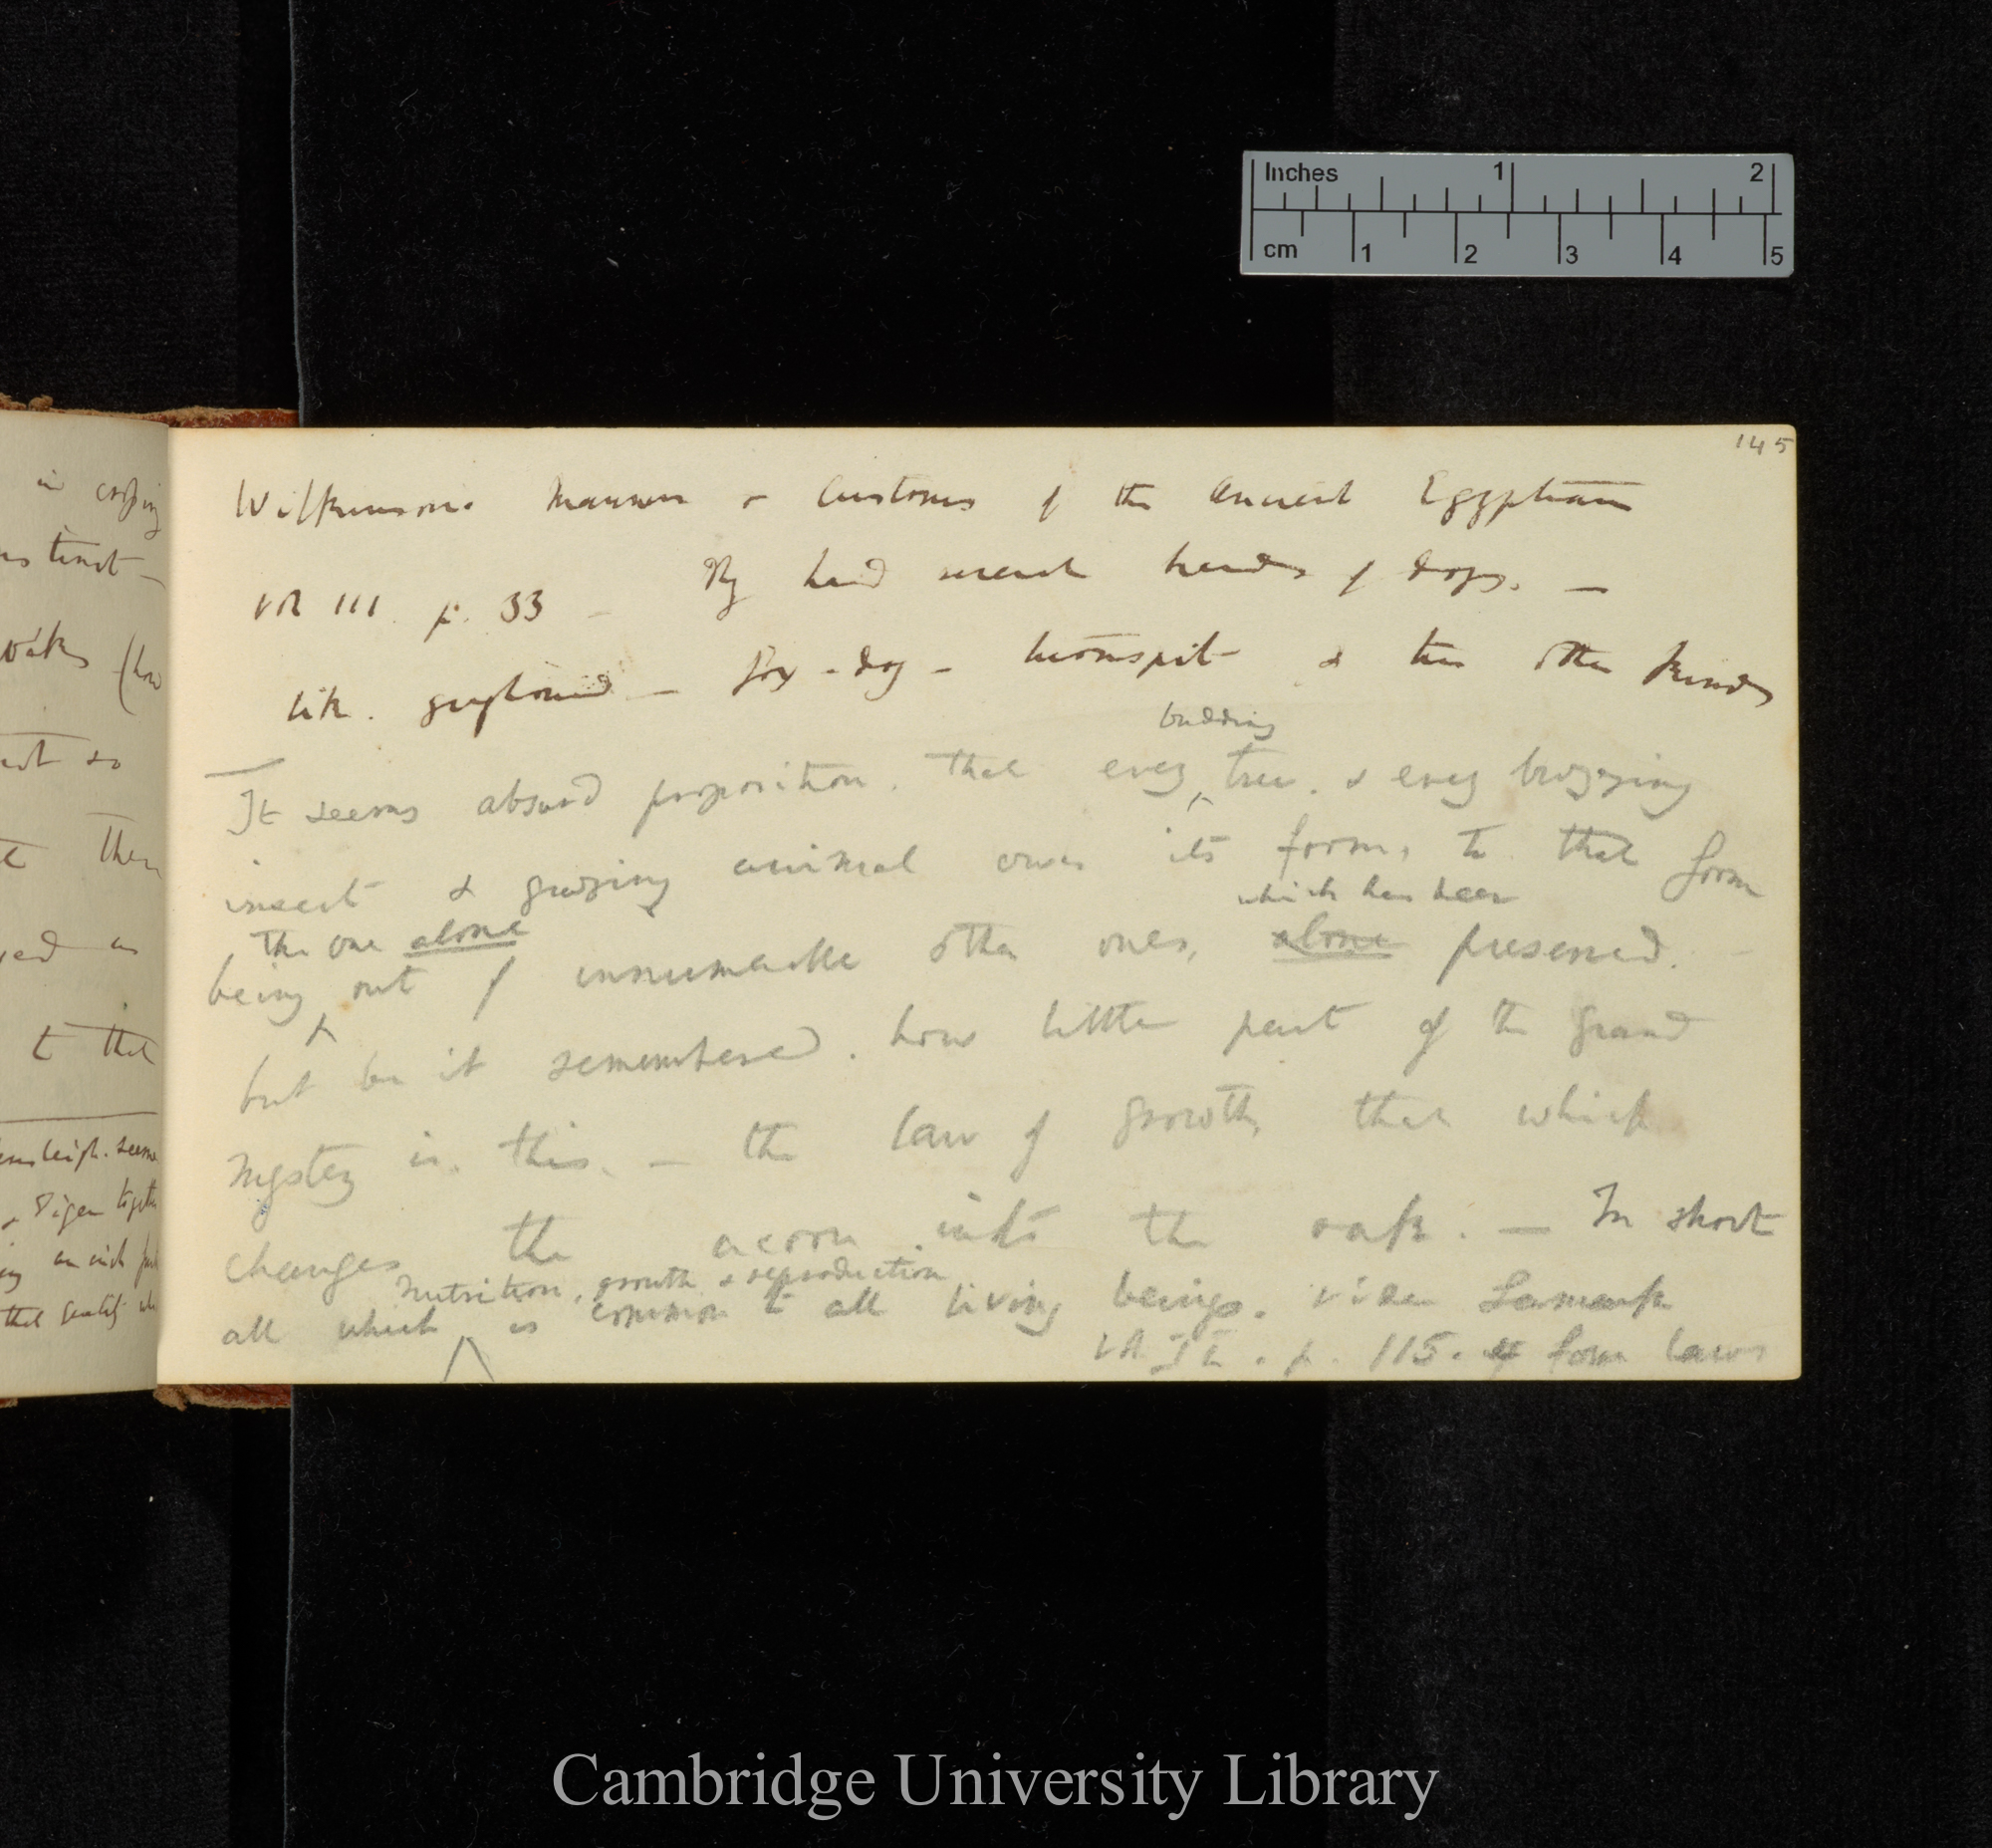 145
Wilkinson's Manners & Customs of the Ancient Egyptians
Vol III. p. 33 — They had several breeds of dogs. —
like. greyhound — fox-dog — turnspit & two other kinds
budding
It seems absurd proposition. that every tree. & every buzzing
insect & grazing animal owes its form, to that form
which has been
the one alone
being out of innumerable other ones, alone preserved. —
but be it remembered. how little part of the grand
mystery is this. — the law of growth, that which
changes the acorn into the oak. — In short
nutrition, growth & reproduction
all which is common to all living beings. vide Lamarck
Vol II. p. 115. form laws
in
instinct —
(how
not so
then
as
to that
Hensleigh. seems
together
an inch
that
Inches 1 2
cm 1 2 3 4 5
Cambridge University Library